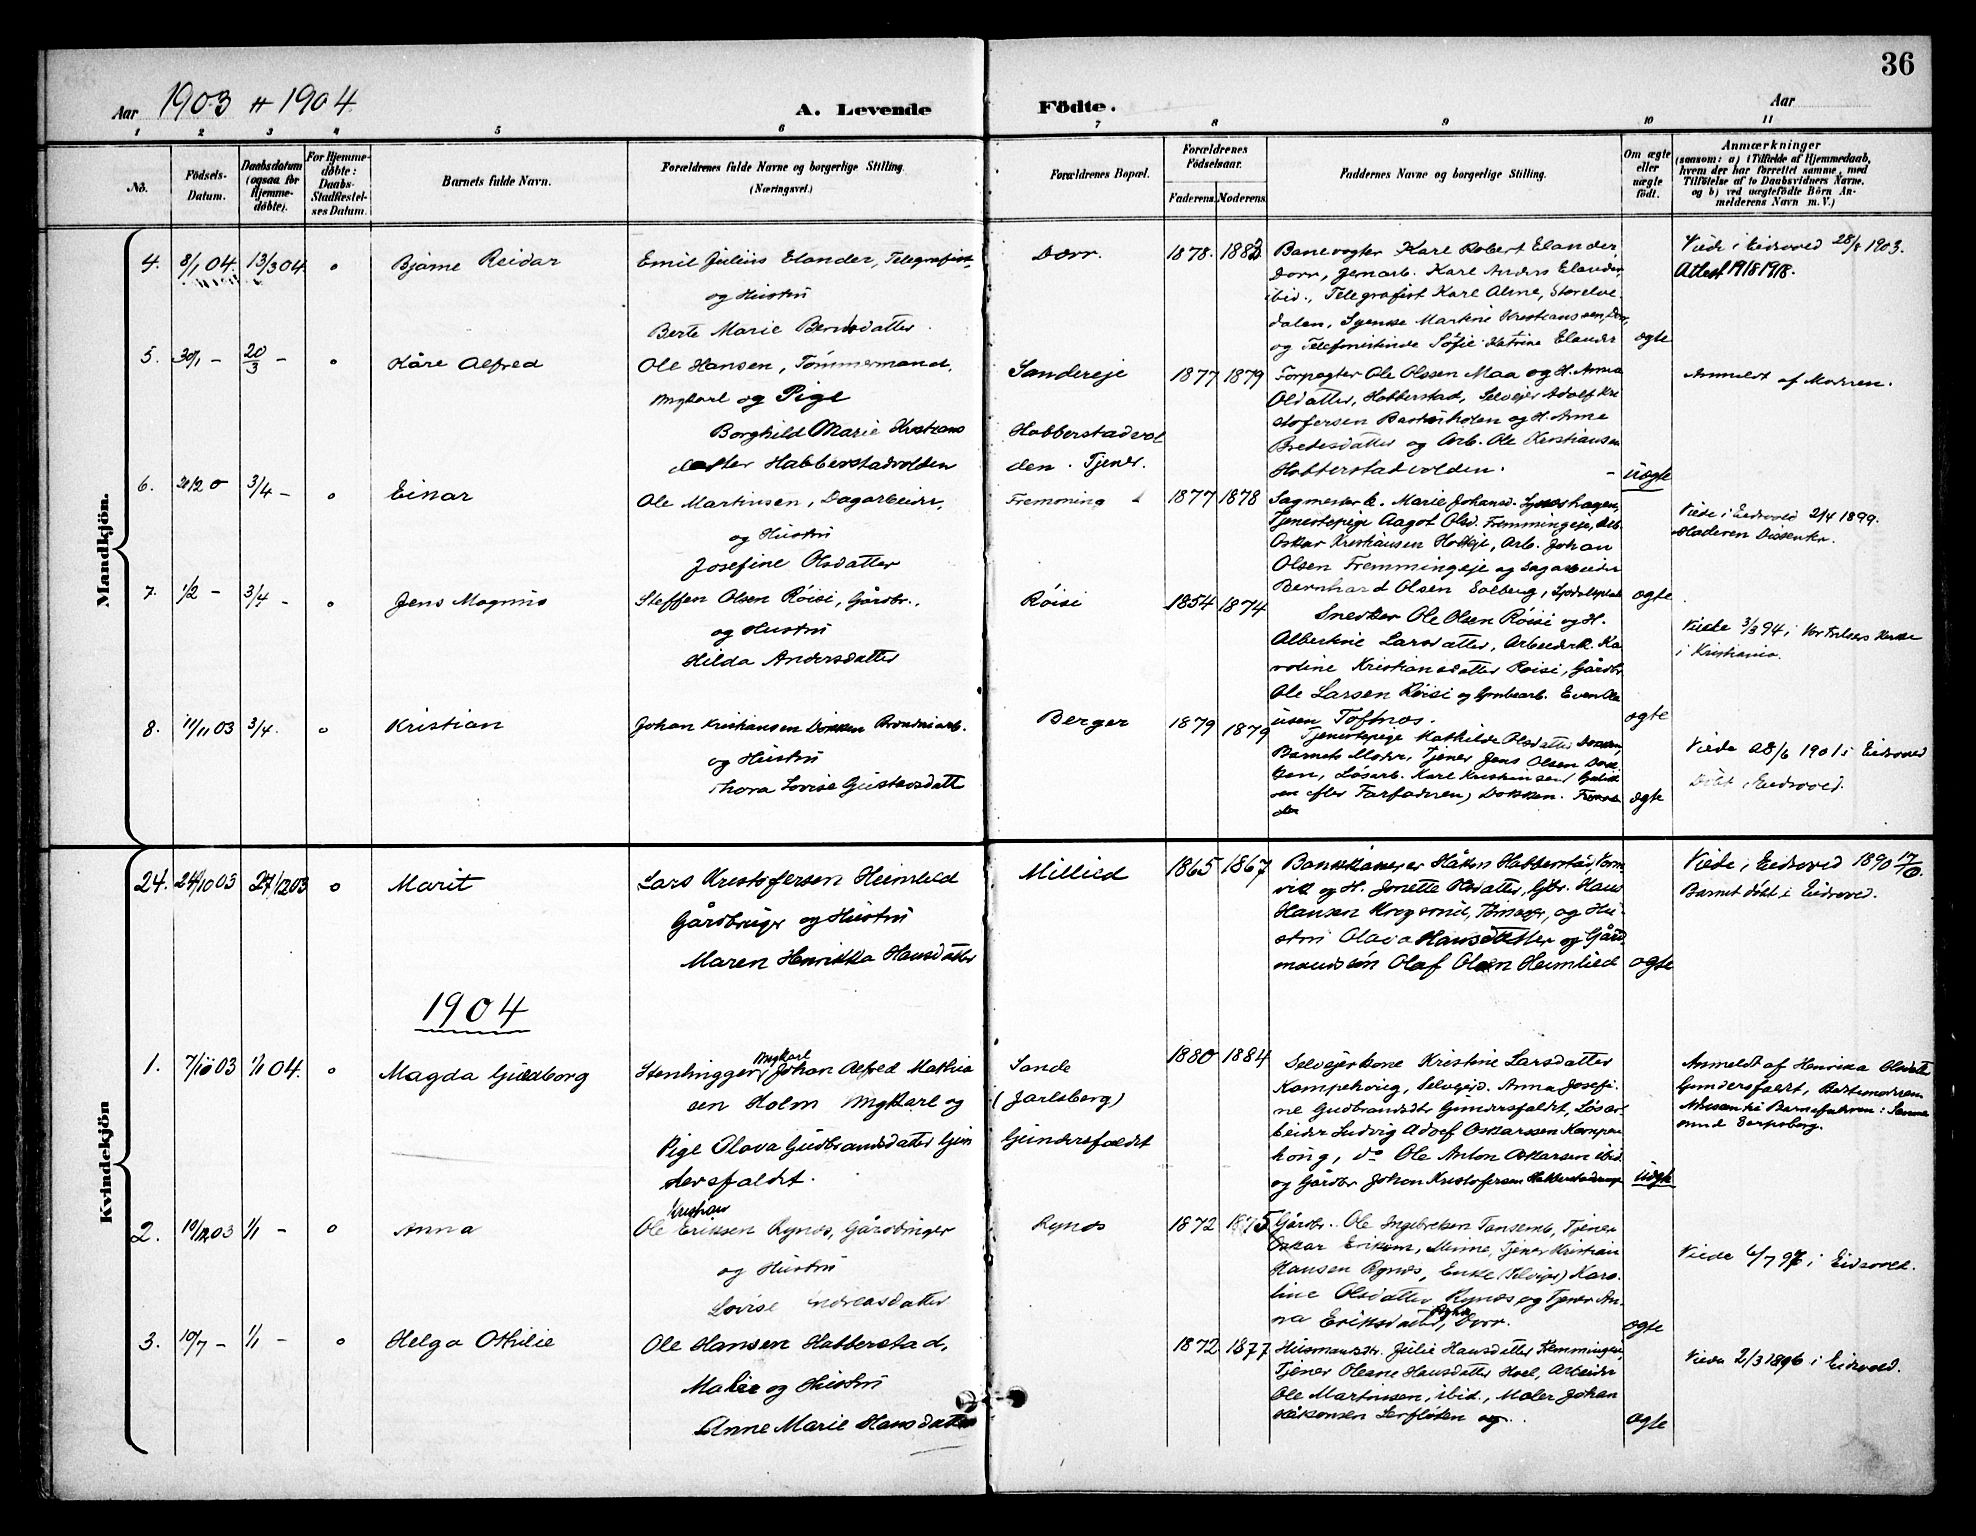 36
Aar 1903 & 1904
A. Levende Födte.
Aar
1 2 3 4 5 6 7 8 9 10 11
No.
Födsels-Datum.
Daabsdatum (ogsaa for Hjemme-döbte).
For Hjemme-döbte: Daabs-Stadfæstel-ses Datum.
Barnets fulde Navn.
Forældrenes fulde Navne og borgerlige Stilling.
(Næringsvei.)
Forældrenes Bopæl.
Forældrenes Födselsaar.
Faderens. Moderens.
Faddernes Navne og borgerlige Stilling.
Om ægte eller uægte födt.
Anmærkninger
(saasom: a) i Tilfælde af Hjemmedaab,
hvem der har forrettet samme, med
Tilföielse af to Daabsvidners Navne,
og b) ved uægtefödte Börn An-
melderens Navn m. V.)
Mandkjön.
4. 8/1 04. 13/3 04 o Bjarne Reidar
Emil Julius Elander, Telegrafist,
og Hustru
Berte Marie Berntsdatter
Dorr. 1878. 1882
Banevogter Karl Robert Elander,
Dorr, Jernarb. Karl Anders Elander,
ibid., Telegrafist Karl Alme, Storelve-
dalen, Martine Kristianssen, Dorr,
og Telefonistinde Sofie Katrine Elander
ægte
Viede i Eidsvold 28/ 1903.
Attest 1918 1918.
5. 30/1 - 20/3 - o Kåre Alfred
Ole Hansen, Tömmermand,
Ungkarl og Pige
Borghild Marie Kristians
datter Habberstadvolden
Sandereje
Habberstadvol
den. Tjener.
1877 1879
Forpagter Ole Olssen Maa og H. Anna
Olsdatter, Habberstad, Selvejer Adolf Kri
stofersen og H. Anne
Bredesdatter og Arb. Ole Kristiansen
Habberstadvolden.
uægte
Anmeldt af Moderen.
6. 20/2 o 3/4 - o Einar
Ole Martinsen, Dagarbeider,
og Hustru
Josefine Olsdatter
Fremming 1877 1878
Sagmester k. Marie Johansd.
Tjenestepige Aagot Olsd. Fremmingeje, Arb.
Oskar Kristiansen, Arb. Johan
Olsen Fremmingeje og Sagarbeider
Bernhard Olsen Solberg,
ægte
Viede i Eidsvold 2/4 1899.
Moderen Dissenter.
7. 1/2 - 3/4 - o Jens Magnus
Steffen Olsen Röisi, Gårdbr.,
og Hustru
Hilda Andersdatter
Röisi 1854 1874
Snedker Ole Olsen Röisi og H.
Albertine Larsdatter, Arbeiderk. Ka-
roline Kristiansdatter Röisi, Gårdbr
Ole Larsen Röisi og Grubearb. Even Ole
Toftnæs.
ægte
Viede 3/3 94 i Vor Frelsers Kirke
i Kristiania.
8. 11/11 03 3/4. o Kristian
Johan Kristiansen Dokken
og Hustru
Thora Lovise Gustavsdatt
Berger 1879 1879
Tjenestepige Mathilde Olsdatter Dokken,
Barnets Moder, Tjener Jens Olsen Dok-
ken, Lösarb. Karl Kristiansen
(efter Farfaderen) Dokken.
ægte
Viede 28/6 1901 i Eidsvold
Döbt i Eidsvold.
Kvindekjön
24. 24/10 03 27/12 03 o Marit
Lars Kristofersen Heimlied
Gårdbruger og Hustru
Maren Henrikka Hansdatter
Millied 1865 1867
Bankkasserer Håkon Habberstad,
vik og H. Jonette Olsdatter, Gbr. Hans
Hansen, og Hu-
stru Olava Hansdatter og Gård-
mandssön Olaf Olsen Heimlied
ægte
Viede i Eidsvold 1890 17/
Barnet döbt i Eidsvold.
1904
1. 7/10 03 1/1 04. o Magda Guldborg
Ungkarl
Stenhugger, Johan Alfred Mathia
sen Holm Ungkarl og
Pige Olava Gudbrandsdatter Gun
dersfaldet.
Sande
(Jarlsberg)
Gundersfaldet
1880 1884
Selvejerkone Kristine Larsdatter
Kampehoug, Selvejerd. Anna Josefi-
ne Gudbrandsdt Gundersfaldet, Lösar-
beider Ludvig Adolf Oskarssen Kampe
houg, do Ole Anton Oskarsen ibid
og Gårdbr Johan Kristofersen
uægte
Anmeldt af Henrika Olsdatter
Gundersfaldet, Bestemoderen
Barnefaderen: Samme
Sarpsborg.
2. 10/12 03 1/1 - o Anna
Kristian
Ole Eriksen Rynæs, Gårdbruger
og Hustru
Lovise Andreasdatter
Rynæs 1872 1875
Gårdbr. Ole Ingebretsen Tansemb, Tjener
Oskar Eriksen, Minne, Tjener Kristian
Hansen Rynæs, Enke (Selvejer) Karo-
line Olsdatter Rynæs og Tjener An-
na Eriksdatter, Dorr.
ægte
Viede 6/7 97 i Eidsvold.
3. 10/7 - 1/1 - o Helga Othilie
Ole Hansen Habberstad,
Maler og Hustru
Anne Marie Hansdatter
1872 1877
Husmandsd. Julie Hansdatter Flemmingen,
Tjener Oleane Hansdatter Hoel, Arbeider
Ole Martinsen, ibid., Maler Johan
Håkonsen Lerfloten og
ægte
Viede 2/3 1896 i Eidsvold.